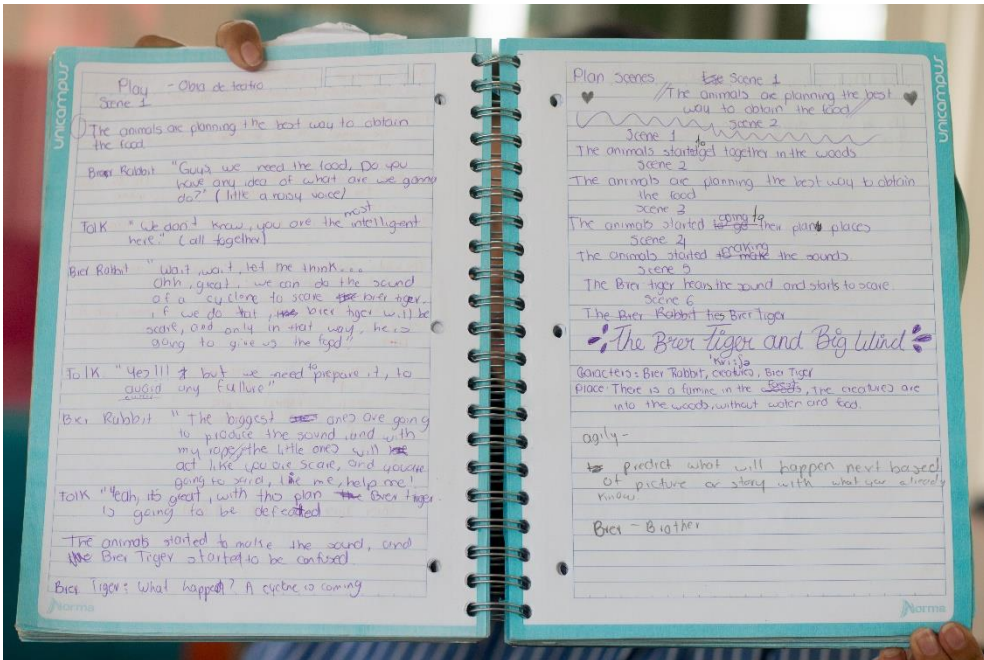 unicampus
Play - Obra de teatro
Scene 1
The animals are planning the best way to obtain
the food
Brer Rabbit "Guys we need the food, Do you
have any idea of what are we gonna
do?" (little a noisy voice)
Tolk "We don't know, you are the most intelligent
here." (all together)
Brer Rabbit "Wait, wait, let me think...
Ohh, great, we can do the sound
of a cyclone to scare the brer tiger,
if we do that, brer tiger will be
scare, and only in that way, he is
going to give us the food"
Tolk "Yes!!! but we need to prepare it, to
avoid any failure"
Brer Rabbit "The biggest ones are going
to produce the sound, and with
my rope, the little ones will
act like you are scare, and you are
going to said, like me, help me!
Tolk "Yeah, it's great, with this plan Brer tiger
is going to be defeated
The animals started to make the sound, and
the Brer Tiger started to be confused
Brer Tiger: What happen? A cyclone is coming
Norma
unicampus
Plan Scenes Scene 1
The animals are planning the best
way to obtain the food
Scene 2
Scene 1
The animals started to get together in the woods
Scene 2
The animals are planning the best way to obtain
the food
Scene 3
The animals started going to their plan places
Scene 4
The animals started making the sounds
Scene 5
The Brer tiger hears the sound and starts to scare
Scene 6
The Brer Rabbit ties Brer Tiger
The Brer Tiger and Big Wind
Caracters: Brer Rabbit, creatures, Brer Tiger
Place: There is a famine in the forest, The creatures are
into the woods, without water and food.
agily -
predict what will happen next based
of picture or story with what you already
know.
Brer - Brother
Norma